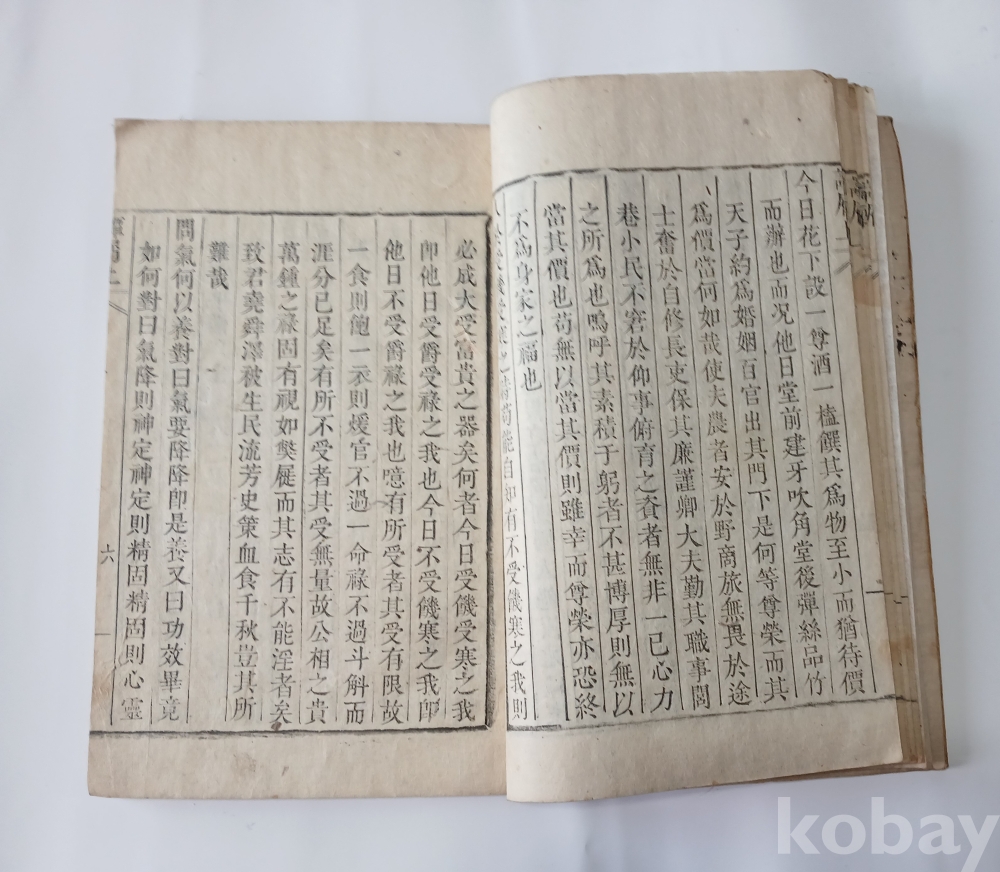 今日花下設一尊酒一榼饌其爲物至小而猶待價
而辦也而况他日堂前建牙吹角堂後彈絲品竹
天子約爲婚姻百官出其門下是何等尊榮而其
爲價當何如哉使夫農者安於野商旅無畏於途
士奮於自修長吏保其廉謹卿大夫勤其職事閭
巷小民不窘於仰事俯育之資者無非一已心力
之所爲也嗚呼其素積于躬者不甚博厚則無以
當其價也苟無以當其價則雖幸而尊榮亦恐終
不爲身家之福也
苟能自知有不受饑寒之我則
必成大受富貴之器矣何者今日受饑受寒之我
卽他日受爵受祿之我也今日不受饑寒之我卽
他日不受爵祿之我也噫有所受者其受有限故
一食則飽一衣則煖官不過一命祿不過斗斛而
涯分已足矣有所不受者其受無量故公相之貴
萬鍾之祿固有視如獘屣而其志有不能淫者矣
致君堯舜澤被生民流芳史策血食千秋豈其所
難哉
問氣何以養對曰氣要降降卽是養又曰功效畢竟
如何對曰氣降則神定神定則精固精固則心靈
六
kobay